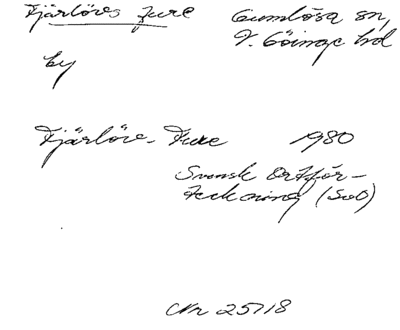 Fjärlöves Fure Gumlösa sn,
V. Göinge hd
by
Fjärlöve-Fure 1980
Svensk Ortför-
teckning (SvO)
Nr 25718